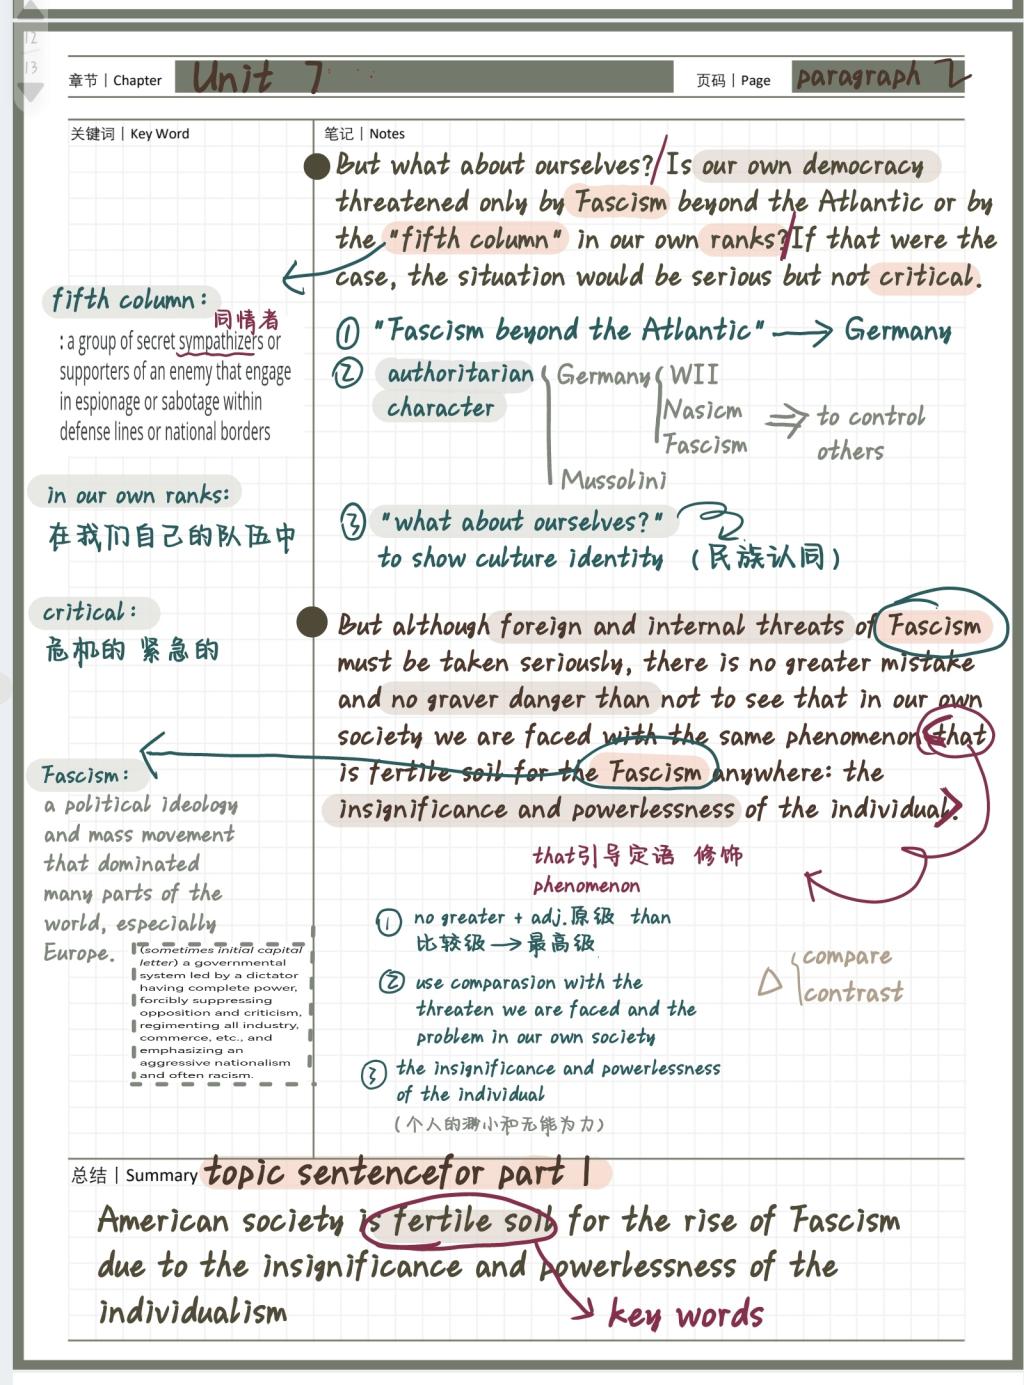 12
13
章节 | Chapter Unit 7
页码 | Page paragraph 2
关键词 | Key Word
笔记 | Notes
But what about ourselves? Is our own democracy
threatened only by Fascism beyond the Atlantic or by
the "fifth column" in our own ranks? If that were the
case, the situation would be serious but not critical.
fifth column:
同情者
: a group of secret sympathizers or
supporters of an enemy that engage
in espionage or sabotage within
defense lines or national borders
① "Fascism beyond the Atlantic" → Germany
② authoritarian
character
Germany WII
Nasicm
Fascism
⇒ to control
others
Mussolini
in our own ranks:
在我们自己的队伍中
③ "what about ourselves?"
to show culture identity (民族认同)
critical:
危机的 紧急的
But although foreign and internal threats of Fascism
must be taken seriously, there is no greater mistake
and no graver danger than not to see that in our own
society we are faced with the same phenomenon that
is fertile soil for the Fascism anywhere: the
insignificance and powerlessness of the individual.
Fascism:
a political ideology
and mass movement
that dominated
many parts of the
world, especially
Europe.
(sometimes initial capital
letter) a governmental
system led by a dictator
having complete power,
forcibly suppressing
opposition and criticism,
regimenting all industry,
commerce, etc., and
emphasizing an
aggressive nationalism
and often racism.
that引导定语 修饰
phenomenon
① no greater + adj.原级 than
比较级 → 最高级
② use comparasion with the
threaten we are faced and the
problem in our own society
△ compare
contrast
③ the insignificance and powerlessness
of the individual
(个人的渺小和无能为力)
总结 | Summary topic sentencefor part 1
American society is fertile soil for the rise of Fascism
due to the insignificance and powerlessness of the
individualism
key words